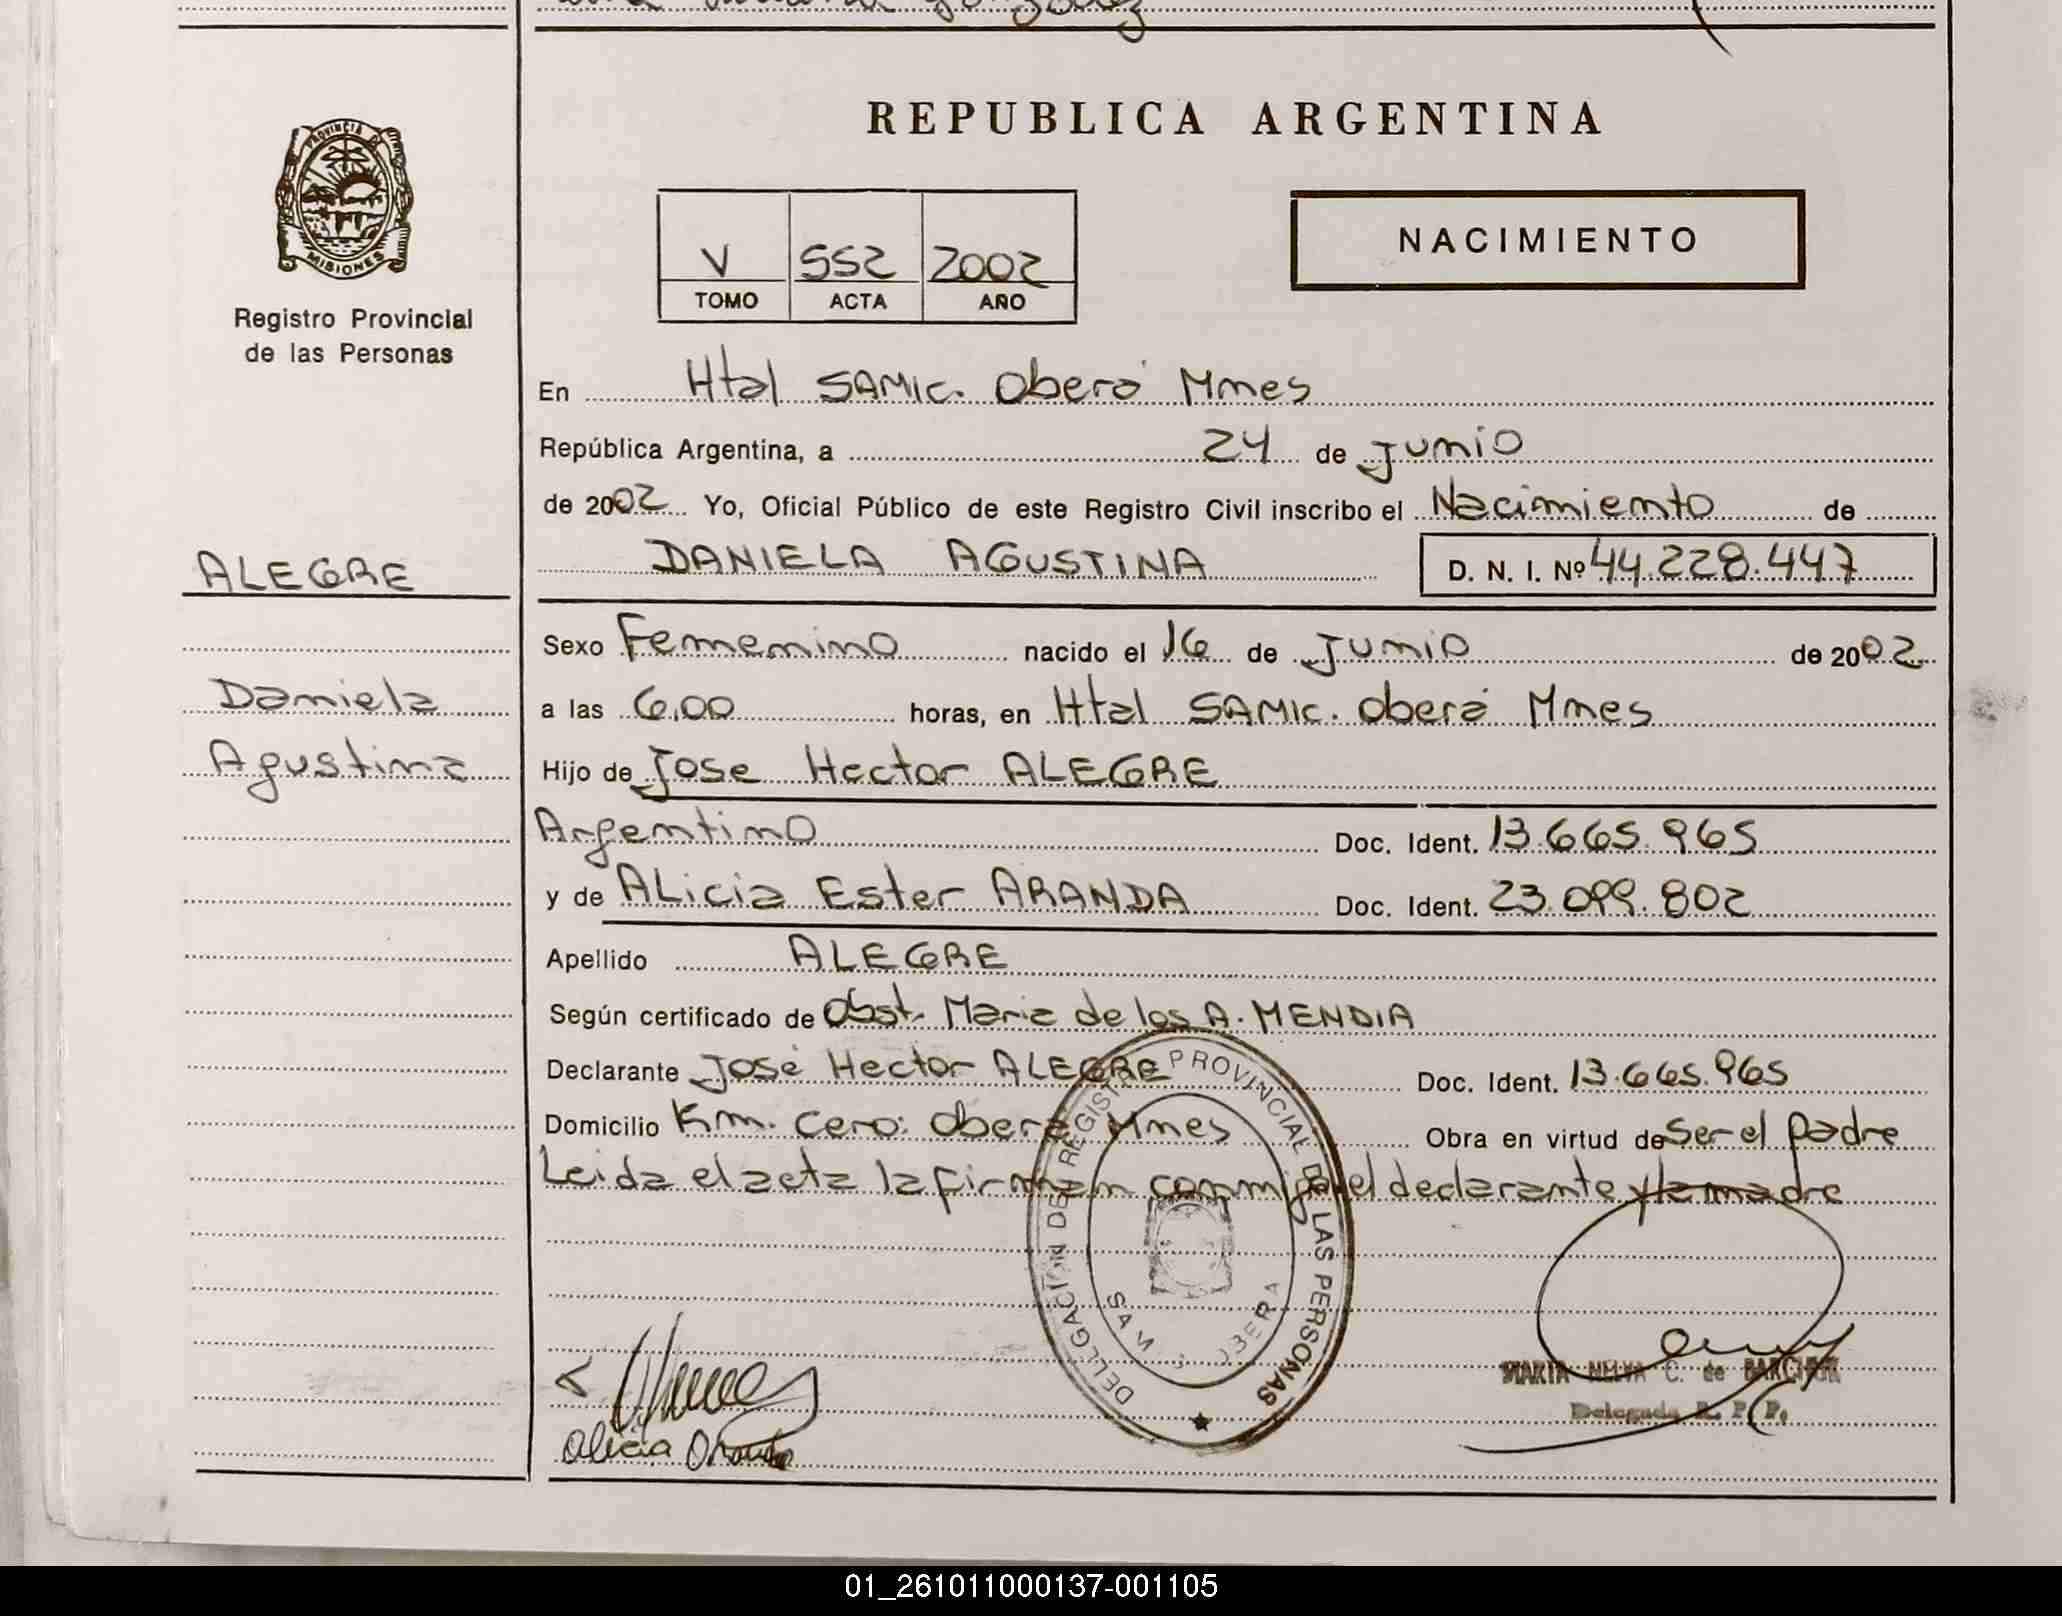 REPUBLICA ARGENTINA
PROVINCIA DE
MISIONES
Registro Provincial
de las Personas
V 552 2002
TOMO ACTA AÑO
NACIMIENTO
En Htal SAMIC. Oberá Mnes
República Argentina, a 24 de Junio
de 2002 Yo, Oficial Público de este Registro Civil inscribo el Nacimiento de
ALEGRE
DANIELA AGUSTINA D. N. I. Nº 44.228.447
Sexo Femenino nacido el 16 de Junio de 2002
Daniela
a las 6,00 horas, en Htal SAMIC. Oberá Mnes
Agustina
Hijo de Jose Hector ALEGRE
Argentino Doc. Ident. 13.665.965
y de ALicia Ester ARANDA Doc. Ident. 23.099.802
Apellido ALEGRE
Según certificado de Obst. Maria de los A. MENDIA
Declarante José Hector ALEGRE Doc. Ident. 13.665.965
Domicilio Km. Cero: Oberá Mnes Obra en virtud de Ser el padre
Leida el acta la firman conmigo el declarante y la madre
DELEGACIÓN DEL REGISTRO PROVINCIAL DE LAS PERSONAS
SAMIC OBERA
MARTA NELVA C. de
Delegada R. P. P.
Alicia Aranda
01_261011000137-001105